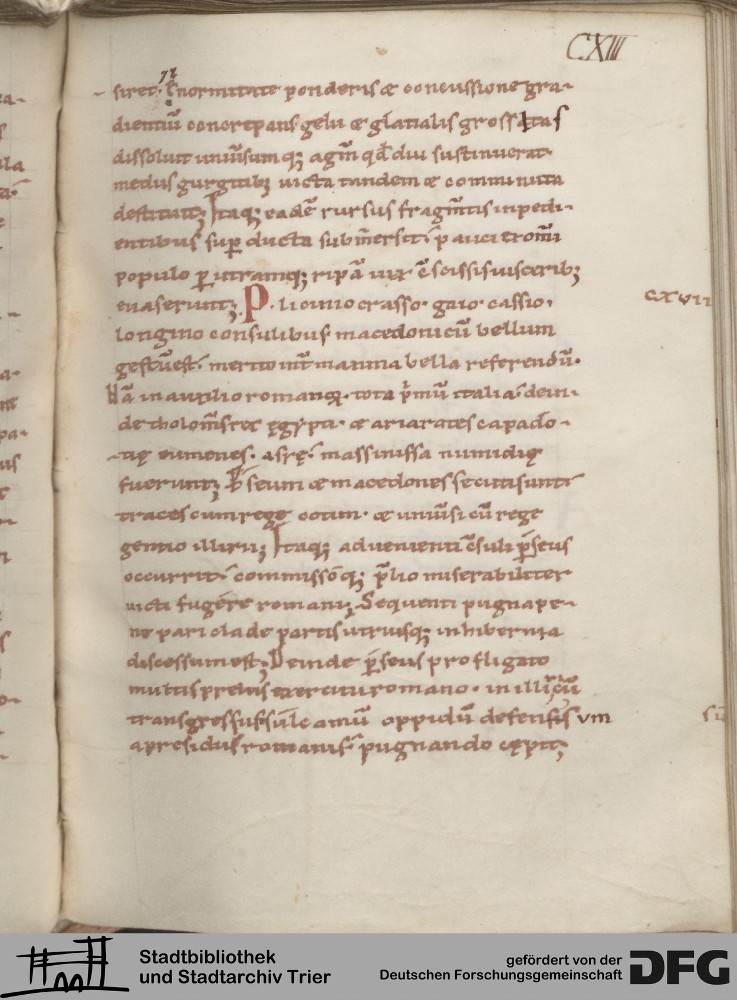 CXIII
siret. Enormitate ponderis & concussione gra-
dientiũ concrepans gelu & glatialis grossitas
dissoluit uniũsumq; agm̃ qđ diu sustinuerat.
medus gurgitib; uicta tandem & comminuta
destituit; Itaq; eadẽ rursus fragm̃tis inpedi-
entibus sup̱ ducta subm̃ersit. p̃ auci ex rom̃i
populo p̱ utramq; ripã uix c̃scissis uiscerib;
euaserunt; P. licinio crasso. gaio. cassio.
CXVII
longino consulibus macedonicũ bellum
gestũ est. merito int̃ maxima bella referendũ.
Nã in auxilio romanoꝝ. tota p̃mũ italia. dein-
de tholom̃s rex ęgypti. & ariarates capado-
tię eumenes. asię. massinissa numidię
fuerunt; P̃seum & macedones secuti sunt.
traces cum rege cotim. & uniũsi cũ rege
gentio illirii; Itaq; aduenienti c̃suli p̃seus
occurrit. commissoq; p̃lio miserabiliter
uicti fugere romani; Sequenti pugna pe-
ne pari clade partis utriusq; in hiberna
discessum est; Deinde p̃seus profligato
multis preliis exercitu romano. in illiricũ
transgressus. sulcamũ oppidũ defensũ
a presidiis romanis. pugnando cępit;
Stadtbibliothek
und Stadtarchiv Trier
gefördert von der
Deutschen Forschungsgemeinschaft
DFG